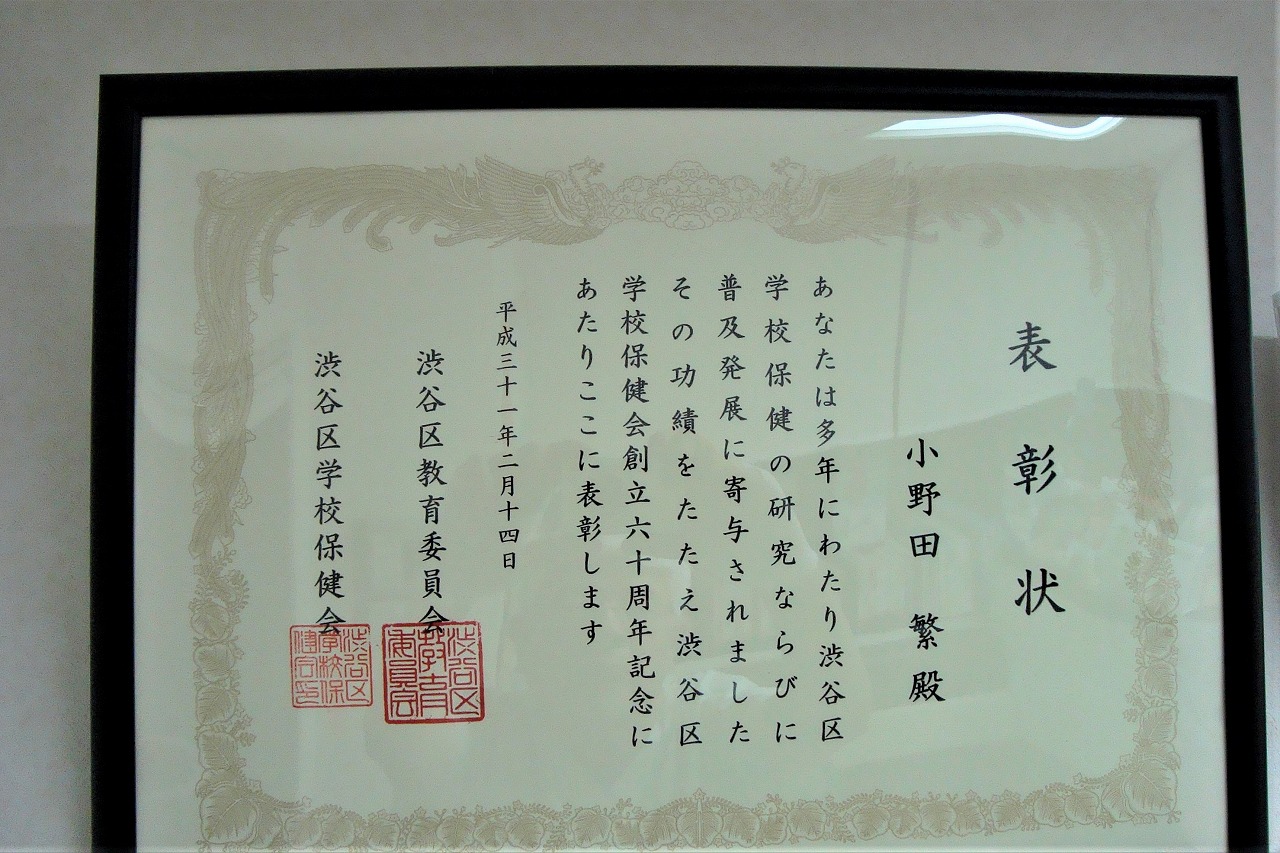 表彰状
小野田 繁 殿
あなたは多年にわたり渋谷区
学校保健の研究ならびに
普及発展に寄与されました
その功績をたたえ渋谷区
学校保健会創立六十周年記念に
あたりここに表彰します
平成三十一年二月十四日
渋谷区教育委員会
渋谷区教育委員会
渋谷区学校保健会
渋谷区学校保健会印